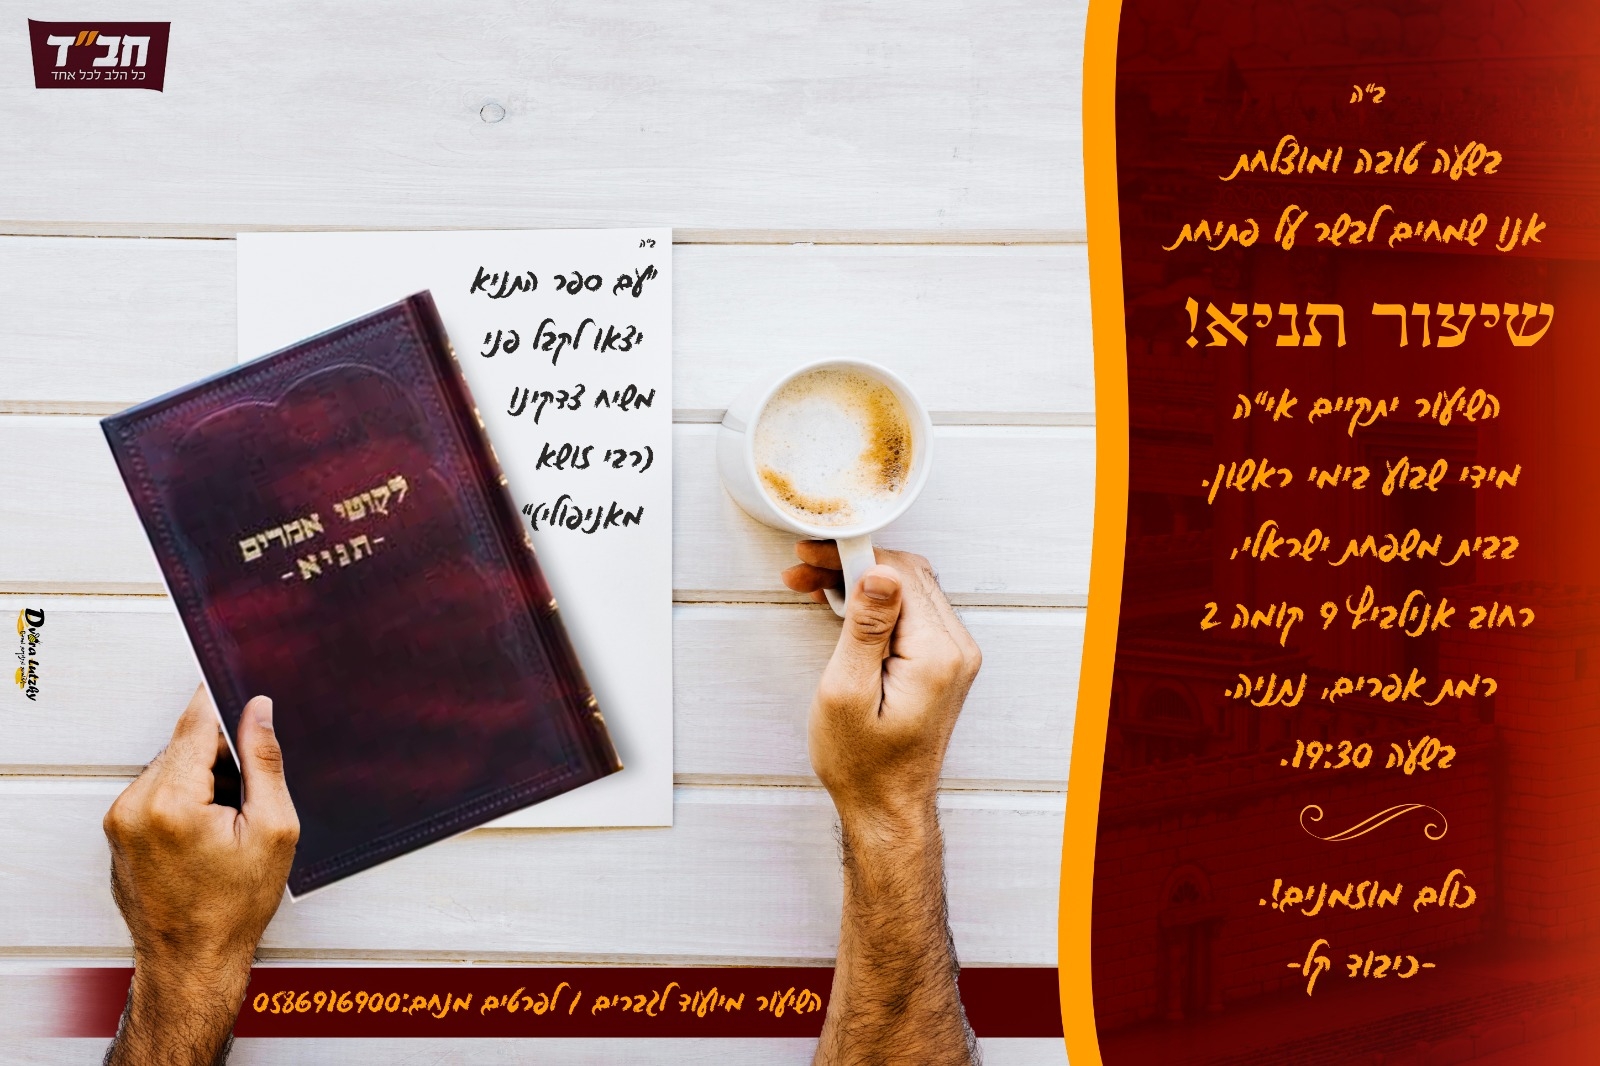 חב"ד
כל הלב לכל אחד
ב"ה
בשעה טובה ומוצלחת
אנו שמחים לבשר על פתיחת
שיעור תניא!
השיעור יתקיים אי"ה
מידי שבוע בימי ראשון.
בבית משפחת ישראלי,
רחוב אנילביץ 9 קומה 2
רמת אפרים, נתניה.
בשעה 19:30.
כולם מוזמנים!.
-כיבוד קל-
ב"ה
"עם ספר התניא
יצאו לקבל פני
משיח צדקינו
(רבי זושא
מאניפולי)"
לקוטי אמרים
-תניא-
השיעור מיועד לגברים / לפרטים מנחם:0586916900
Dvora Lutzky